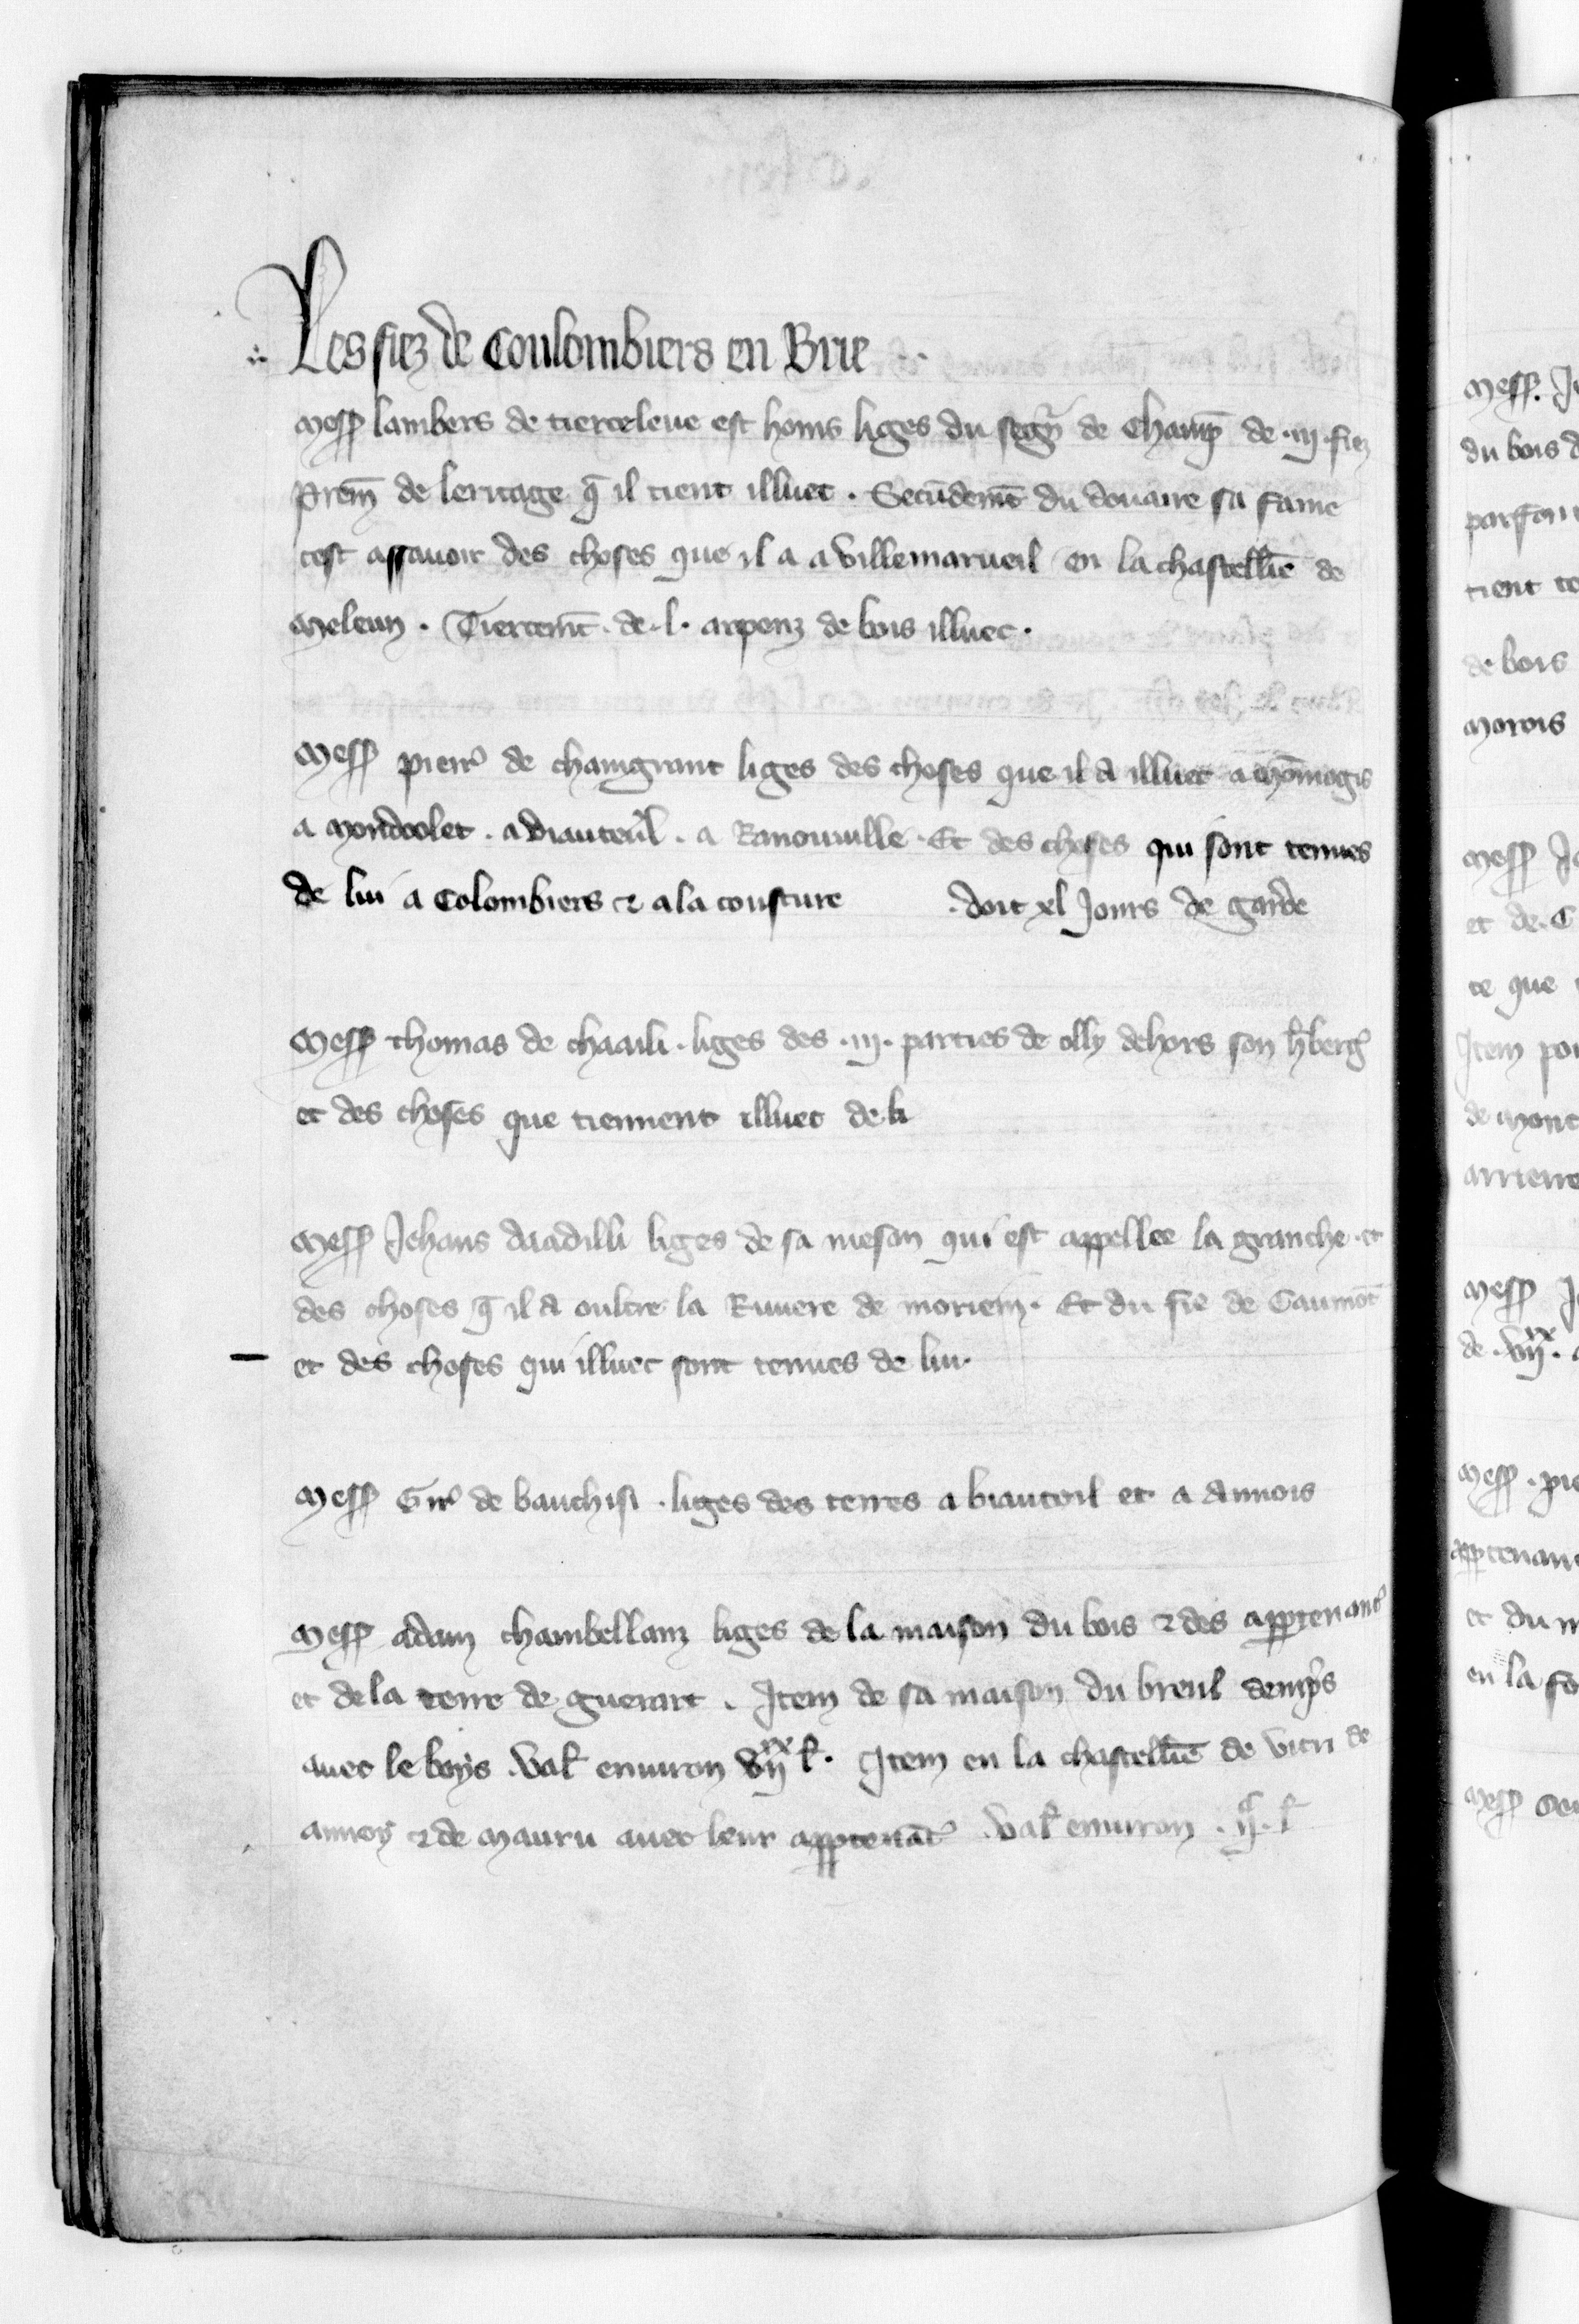 Les fiez de Coulombiers en Brie
Mess̃ lambers de tierceleue est homs liges du segñ de Champ̃ de .iij. fiez
Prem̃ de leritage q̃ il tient illuec . Secũdem̃t du douaire sa fame
cest assauoir des choses que il a a villemarueil en la chastellie̅ de
Meleun . Tiercem̃t . de .l. arpenz de bois illuec .
Mess̃ pierr̃ de chaingrant liges des choses que il a illuec a mo̅mogis
a mondoolet . a biauteũl . a Ranouuille . Et des choses qui sont tenues
de lui a Colombiers & a la cousture . doit xl Jours de garde
Mess̃ thomas de chaaili . liges des .iij. parties de olly dehors son h̃berg̃
et des choses que tiennent illuec de li
Mess̃ Jehans daadilli liges de sa meson qui est appellee la granche . et
des choses q̃ il a oultre la Riuiere de moriein . Et du fie de Caumo̅t
et des choses qui illuec sont tenues de lui .
Mess̃ Gir̃ de bauchisi . liges des terres a biautoil et a Annois
Mess̃ adam chambellanz liges de la maison du bois & des appten̄anc̃
et de la terre de guerart . Item de sa maison du breul demp̃s
auec le boys . val̃ enuiron vijˣˣ l̃ . Item en la chastellie̅ de vitri de
annoy & de mauru auec leur appten̄ac̃ . val̃ enuiron . ijᶜ . l̃
Mess̃ . J
du bois d
tient te
de bois
morois
Mess̃ J
et de . C
ce que
Item po
de mont
arriere
Mess̃ J
de . vijˣˣ .
Mess̃ . pie
apptenanc
et du m
en la fo
Mess̃